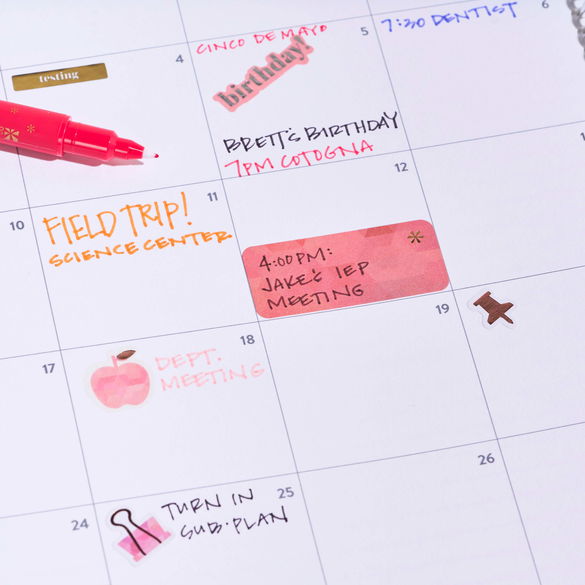 4
testing
CINCO DE MAYO
5
birthday!
BRETT'S BIRTHDAY
7PM COTOGNA
6
7:30 DENTIST
10
11
FIELD TRIP!
SCIENCE CENTER
12
4:00 PM:
JAKE'S IEP
MEETING
17
18
DEPT.
MEETING
19
24
25
TURN IN
SUB·PLAN
26